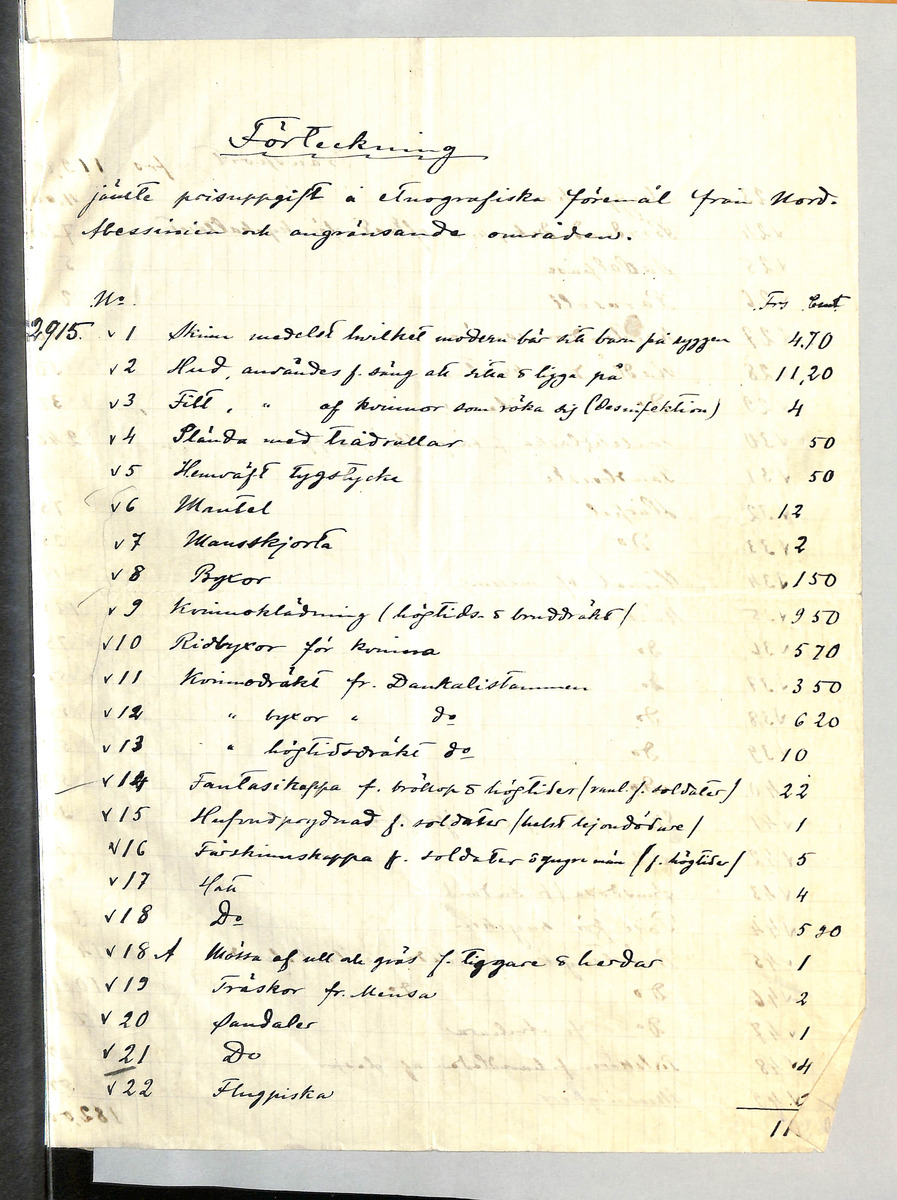 Förteckning
jämte prisuppgift å etnografiska föremål från Nord-
Abessinien och angränsande områden.
No. Frs Cent
2915. v 1 Skinn medelst hvilket modern bär sitt barn på ryggen 4.70
v 2 Hud, användes f. säng att sitta & ligga på 11,20
v 3 Filt, " af kvinnor som röka sig (desinfektion) 4
v 4 Slända med trådrullar 50
v 5 Hemväft tygstycke 50
v 6 Mantel 12
v 7 Mansskjorta 2
v 8 Byxor 1 50
v 9 Kvinnoklädning (högtids- & bruddräkt) 9 50
v 10 Ridbyxor för kvinna 5 70
v 11 Kvinnodräkt fr. Dankalistammen 3 50
v 12 " byxor " do 6 20
v 13 " högtidsdräkt do 10
v 14 Fantasikappa f. bröllop & högtider (vanl. f. soldater) 22
v 15 Hufvudprydnad f. soldater (helst lejondödare) 1
v 16 Fårskinnskappa f. soldater & yngre män (f. högtider) 5
v 17 Hatt 4
v 18 Do 5 20
v 18 A Mössa af ull och gräs f. tiggare & herdar 1
v 19 Träskor fr. Mensa 2
v 20 Sandaler 1
v 21 Do 4
v 22 Flugpiska
11